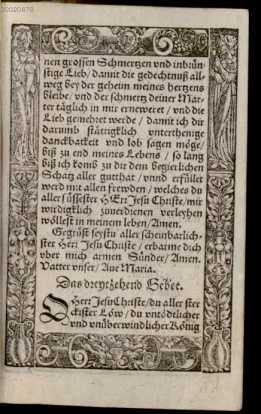 00020879
nen grossen Schmertzen vnd inbrün-
stige Lieb/ damit die gedechtnuß all-
weg bey der geheim meines hertzens
bleibe/ vnd der schmertz deiner Mar-
ter täglich in mir ernewert/ vnd die
Lieb gemehret werde/ damit ich dir
darumb stättigklich vnterthenige
danckbarkeit vnd lob sagen möge/
biß zu end meines Lebens/ so lang
biß ich kom̃ zu dir dem begierlichen
Schatz aller gutthat/ vnnd erfüllet
werd mit allen frewden/ welches du
aller süssester HErr Jesu Christe/ mir
wirdigklich zuuerdienen verleyhen
wöllest in meinem leben/ Amen.
Gegrüßt seystu aller scheinbarlich-
ster Herr Jesu Christe/ erbarme dich
vber mich armen Sünder/ Amen.
Vatter vnser/ Aue Maria.
Das dreyzehend Gebet.
O Herr Jesu Christe/ du aller ster
ckister Löw/ du vntödtlicher
vnd vnüberwindlicher König